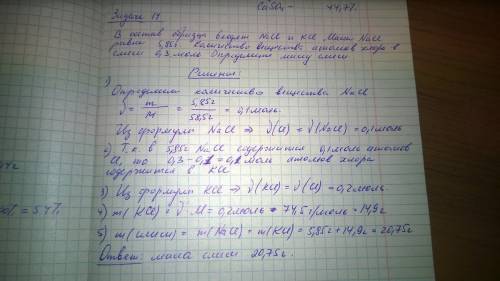 CaSO₄ – 44,7%
Задача 14
В состав образца входят NaCl и KCl. Масса NaCl
равна 5,85г. Количество вещества атомов хлора в
смеси 0,3 моль. Определите массу смеси
Решение:
1)
Определяем количество вещества NaCl
ν = m/M = 5,85г/58,5г = 0,1моль.
Из формулы NaCl ⇒ ν(Cl) = ν(NaCl) = 0,1моль
2) Т.к. в 5,85г NaCl содержится 0,1моль атомов
Cl, то 0,3 - 0,1 = 0,2 моль атомов хлора
содержится в KCl
3) Из формулы KCl ⇒ ν(KCl) = ν(Cl) = 0,2моль
4) m(KCl) = ν · M = 0,2моль · 74,5г/моль = 14,9г
5) m(смеси) = m(NaCl) = m(KCl) = 5,85г + 14,9г = 20,75г
Ответ: масса смеси 20,75г.
= 54%